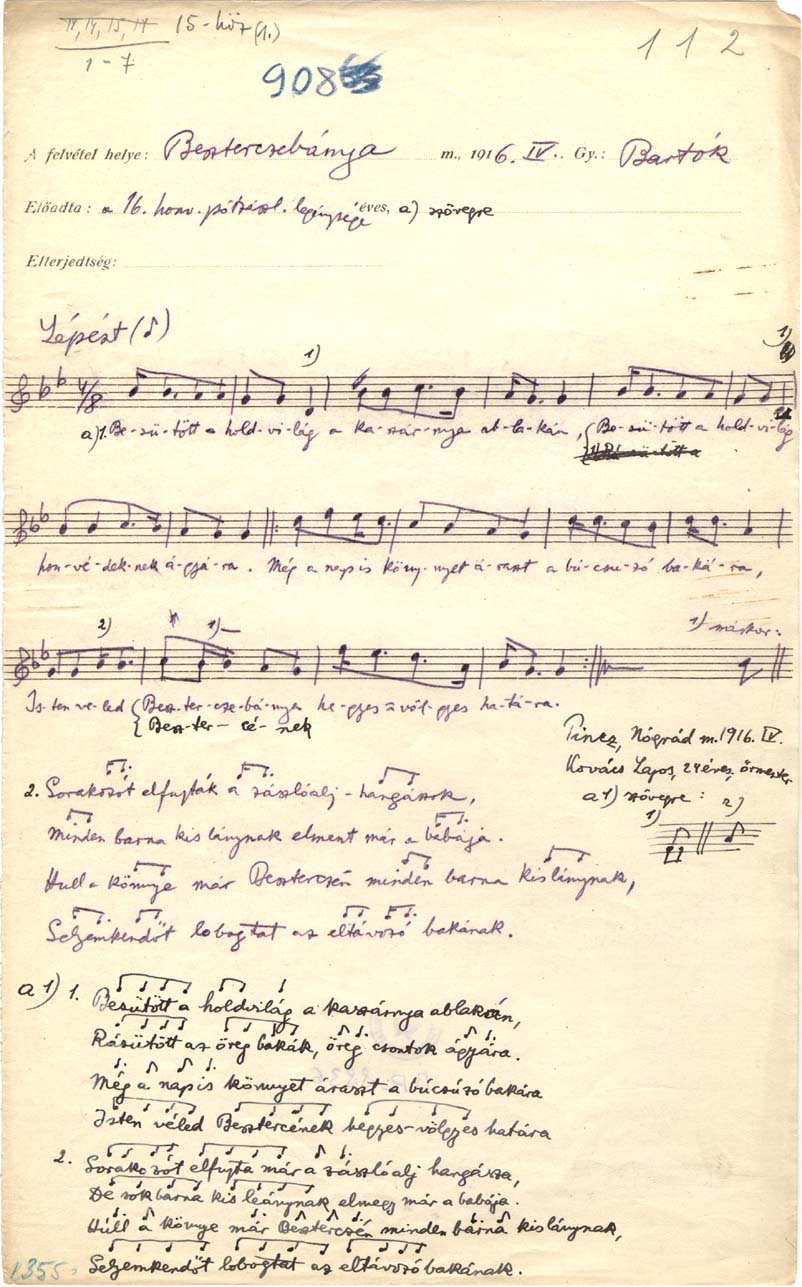 11, 14, 15, 17 15-höz (1.)
1-7
112
908
A felvétel helye: Beszterczebánya m., 1916. IV. Gy.: Bartók
Előadta: a 16. honv. pótzászl. legénysége éves, a) szövegre
Elterjedtség:
Lépést
1) 1)
4/8
a) 1. Be-sü-tött a hold-vi-lág a ka-szár-nya ab-la-kán, Be-sü-tött a hold-vi-lág
hon-vé-dek-nek á-gyá-ra. Még a nap is köny-nyet á-raszt a bú-csu-zó ba-ká-ra,
2) 1) 1) máskor:
Is-ten ve-led Besz-ter-cze-bánya he-gyes-völ-gyes ha-tá-ra.
Besz-ter-cé-nek
Tincz, Nógrád m. 1916. IV.
Kovács Lajos, 24 éves, őrmester
a1) szövegre:
1) 2)
2. Sorakozót elfujták a zászlóalj-hangászok,
Minden barna kis lánynak elment már a babája.
Hull a könnye már Beszterczén minden barna kislánynak,
Selyemkendőt lobogtat az eltávozó bakának.
a1) 1. Besütött a holdvilág a kaszárnya ablakán,
Rásütött az öreg bakák, öreg csontok ágyára.
Még a nap is könnyet áraszt a búcsúzó bakára
Isten véled Besztercének hegyes-völgyes határa
2. Sorakozót elfujta már a zászlóalj hangásza,
De sok barna kis leánynak elmegy már a babája.
Hull a könnye már Beszterczén minden barna kislánynak,
Selyemkendőt lobogtat az eltávozó bakának.
1355